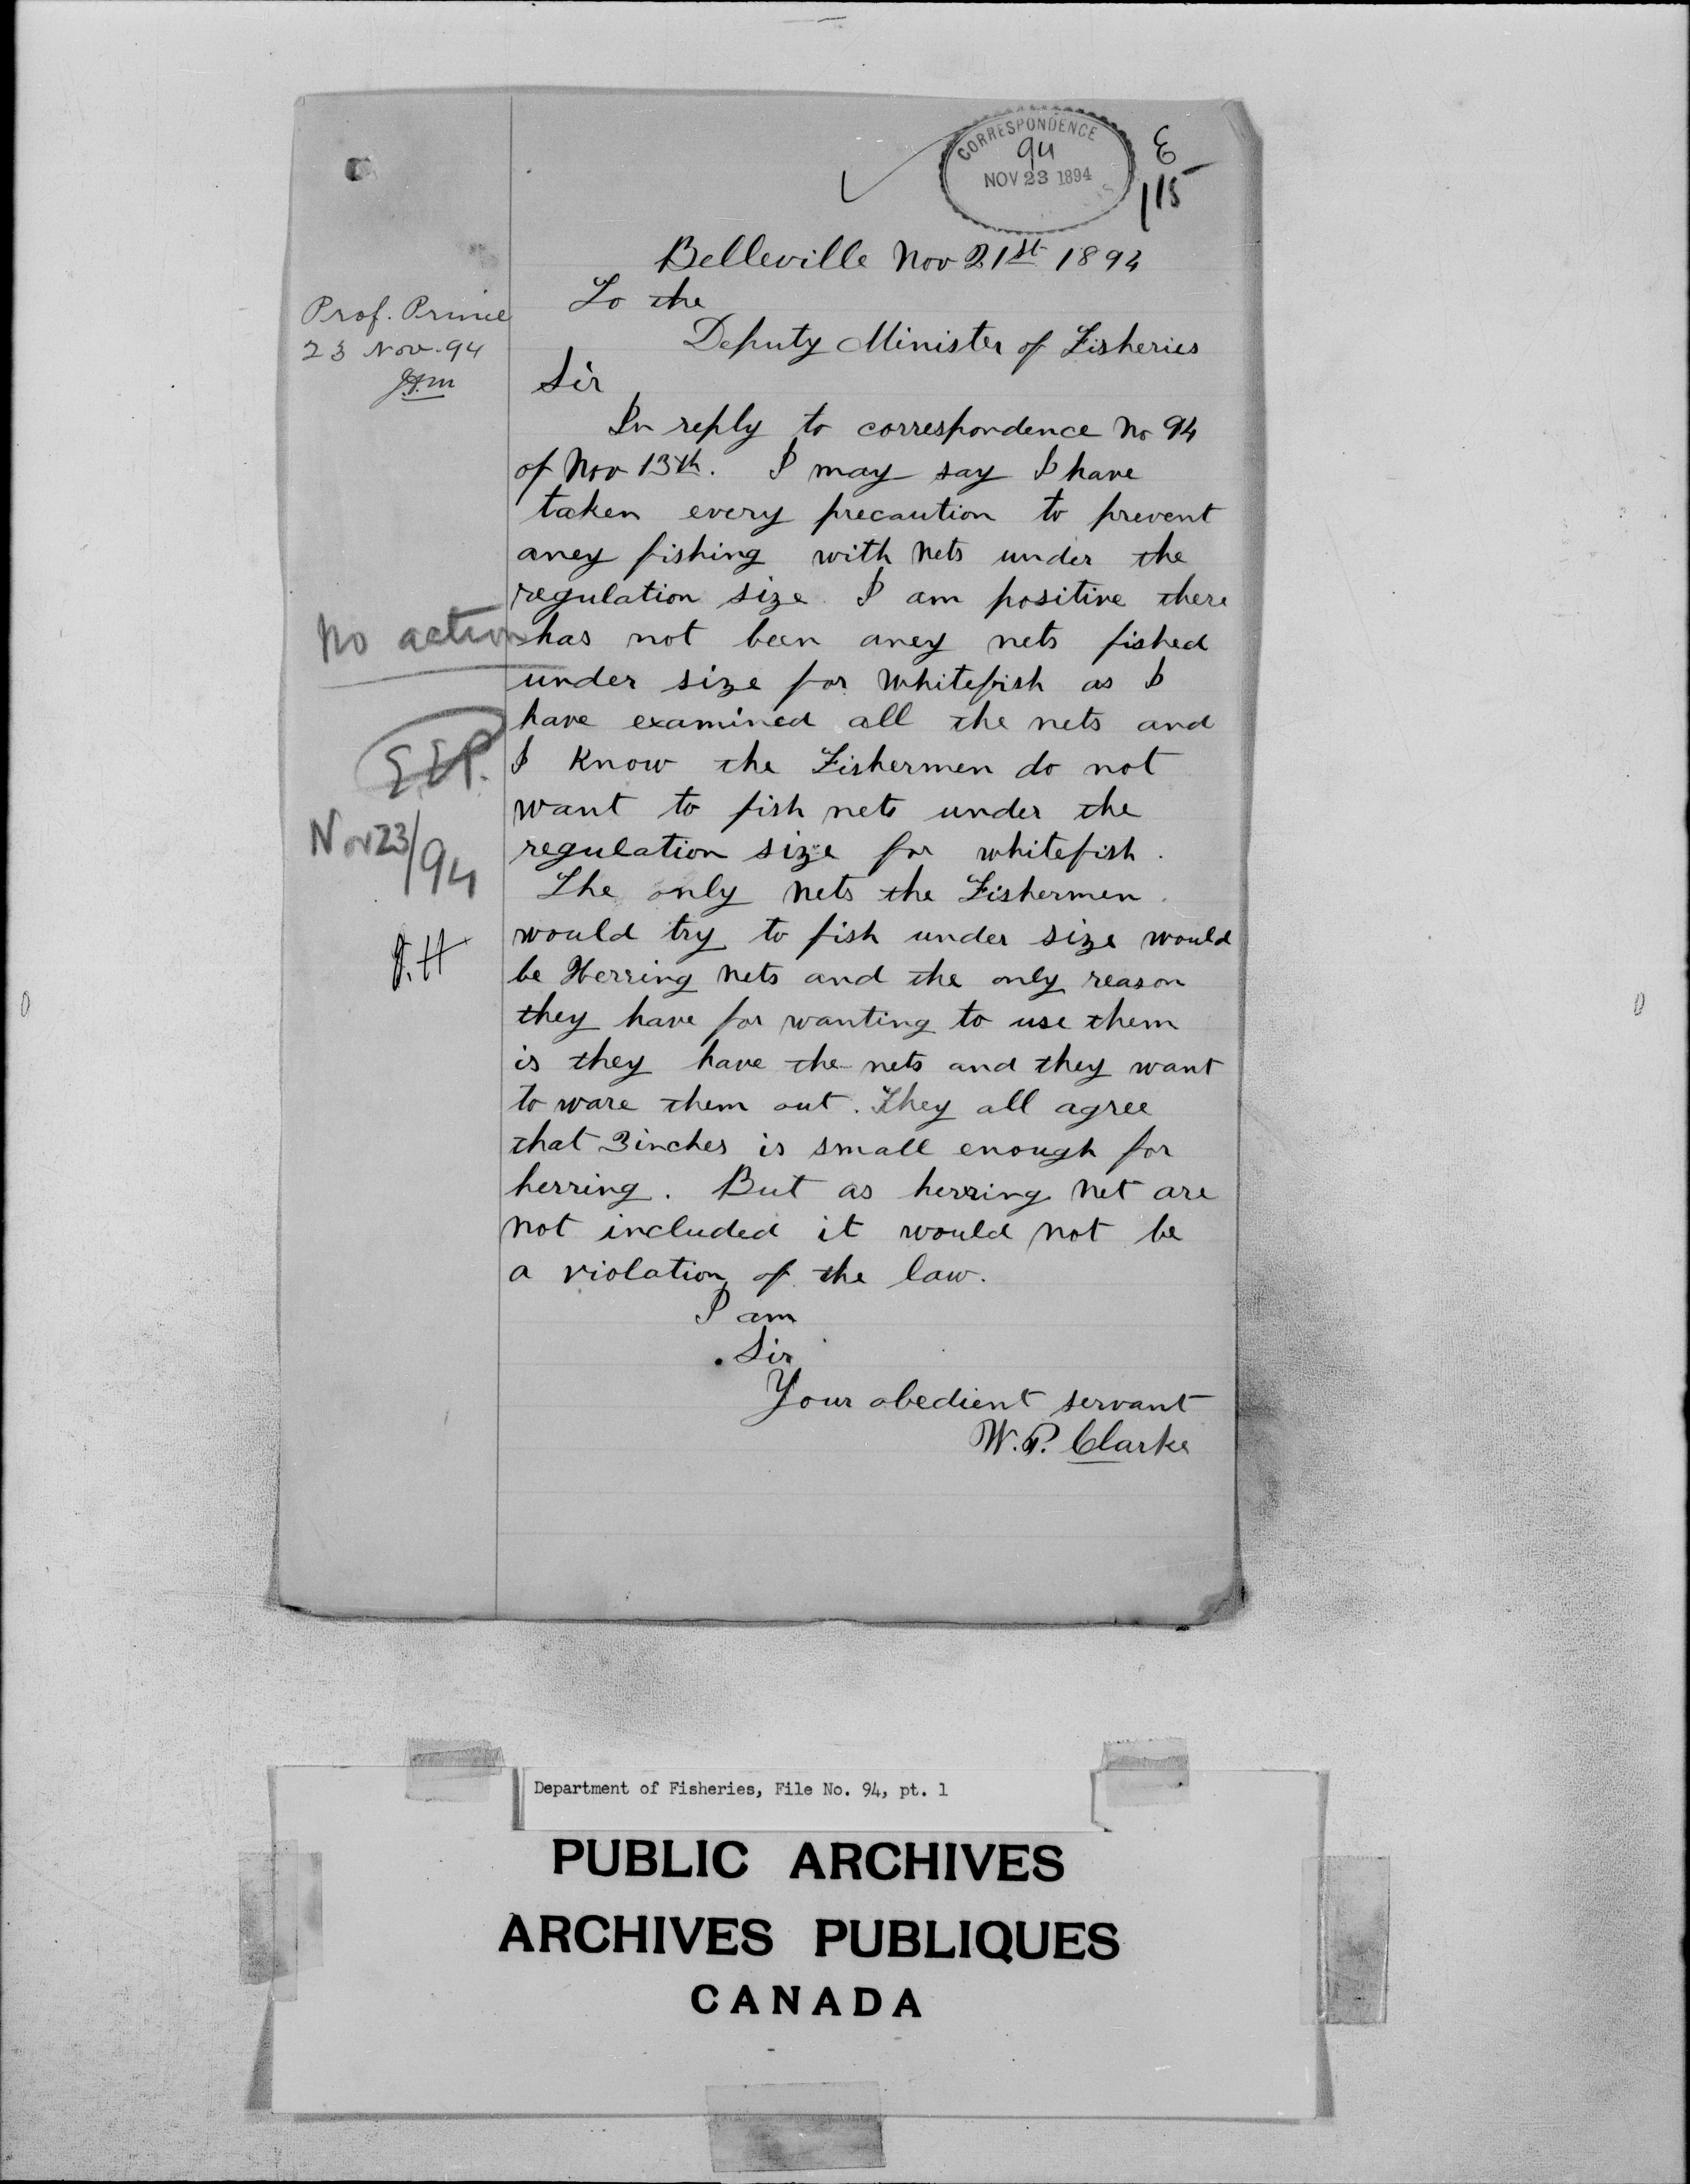 CORRESPONDENCE
94
NOV 23 1894
E
115
Belleville Nov 21st 1894
To the
Deputy Minister of Fisheries
Sir
In reply to correspondence No 94
of Nov 13th. I may say I have
taken every precaution to prevent
aney fishing with nets under the
regulation size. I am positive there
has not been aney nets fished
under size for whitefish as I
have examined all the nets and
I know the Fishermen do not
want to fish nets under the
regulation size for whitefish.
The only nets the Fishermen
would try to fish under size would
be Herring nets and the only reason
they have for wanting to use them
is they have the nets and they want
to ware them out. They all agree
that 3 inches is small enough for
herring. But as herring net are
not included it would not be
a violation of the law.
I am
Sir
Your obedient servant
W.P. Clarke
Prof. Prince
23 Nov. 94
No action
E.E.P.
Nov 23/94
Department of Fisheries, File No. 94, pt. 1
PUBLIC ARCHIVES
ARCHIVES PUBLIQUES
CANADA